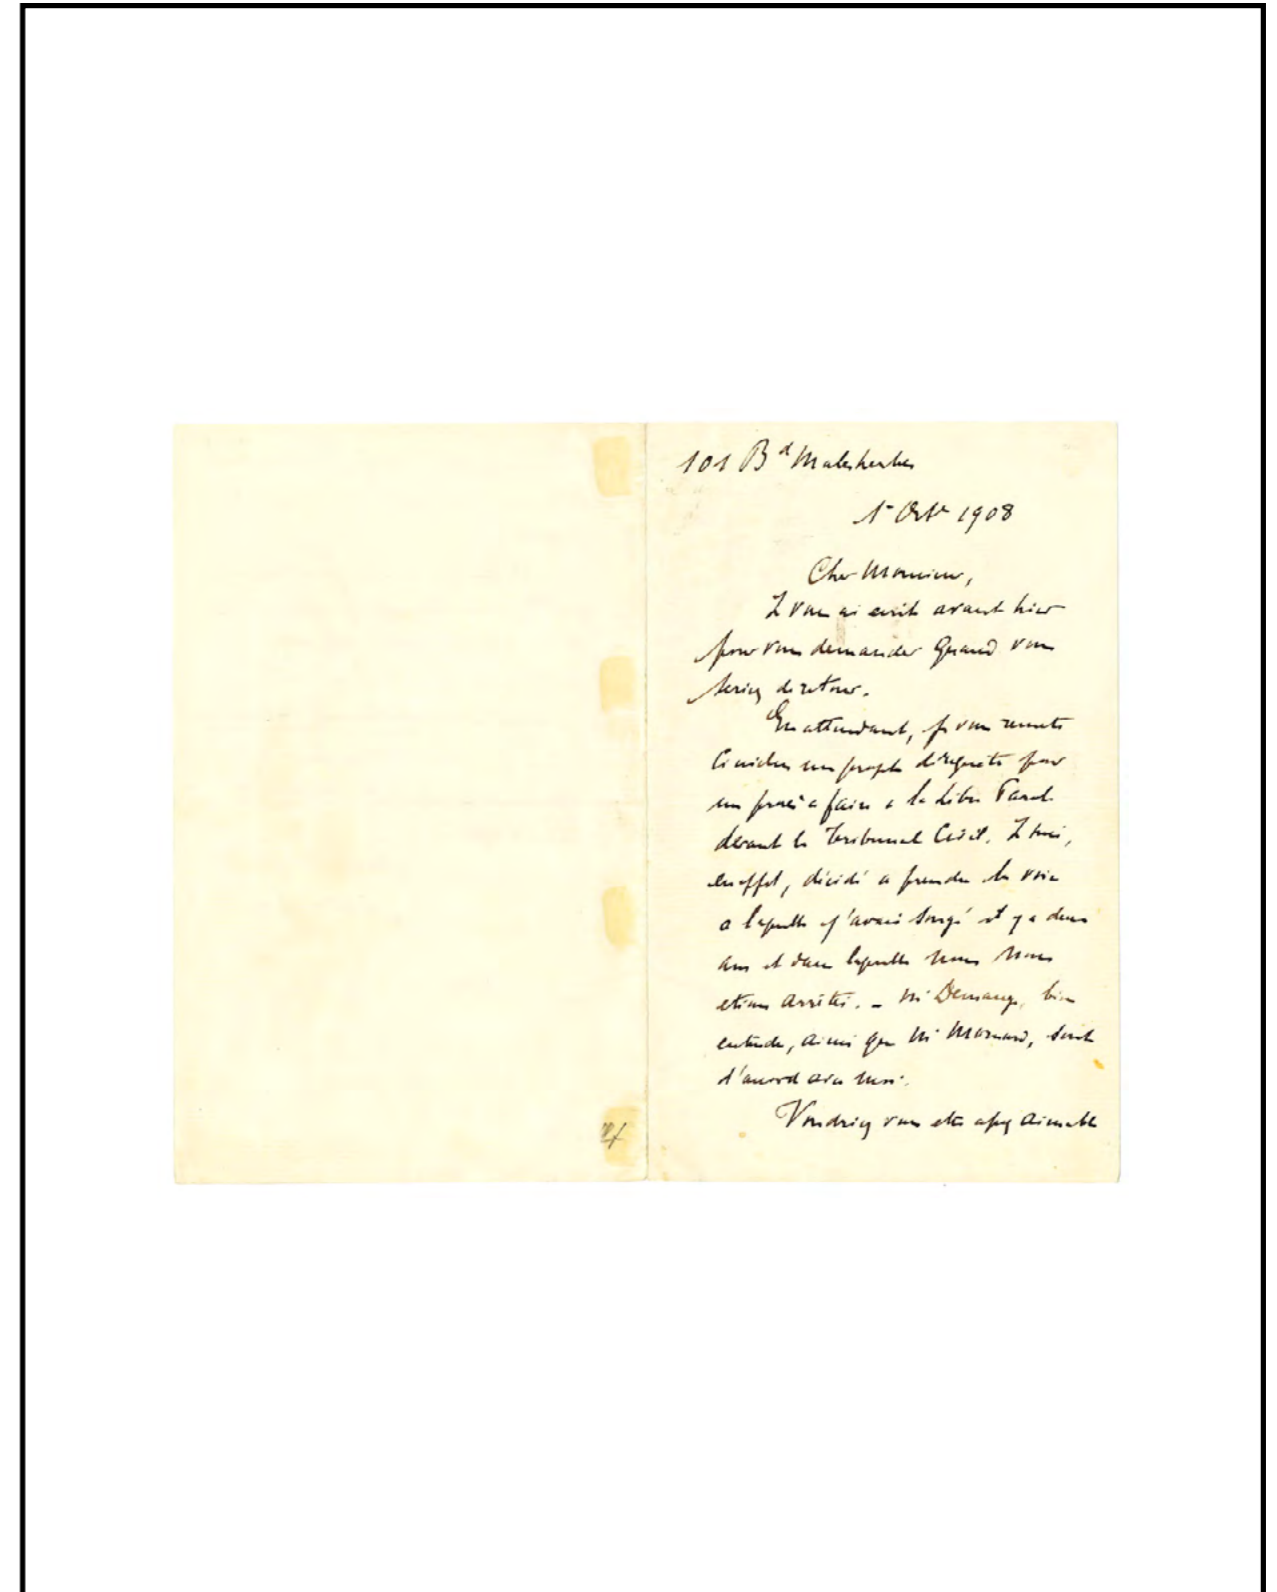 101 Bd Malesherbes
1er Octre 1908
Cher Monsieur,
Je vous ai écrit avant hier
pour vous demander quand vous
seriez de retour.
En attendant, je vous remets
ci inclus un projet de requête pour
un procès a faire a la Libre Parole
devant le Tribunal Civil. Je suis,
en effet, décidé a prendre la voie
a laquelle j'avais songé il y a deux
ans et dans laquelle nous nous
etions arrêtés. – Me Demange, bien
entendu, ainsi que Me Mornard, sont
d'accord avec moi.
Voudriez vous etre assez aimable